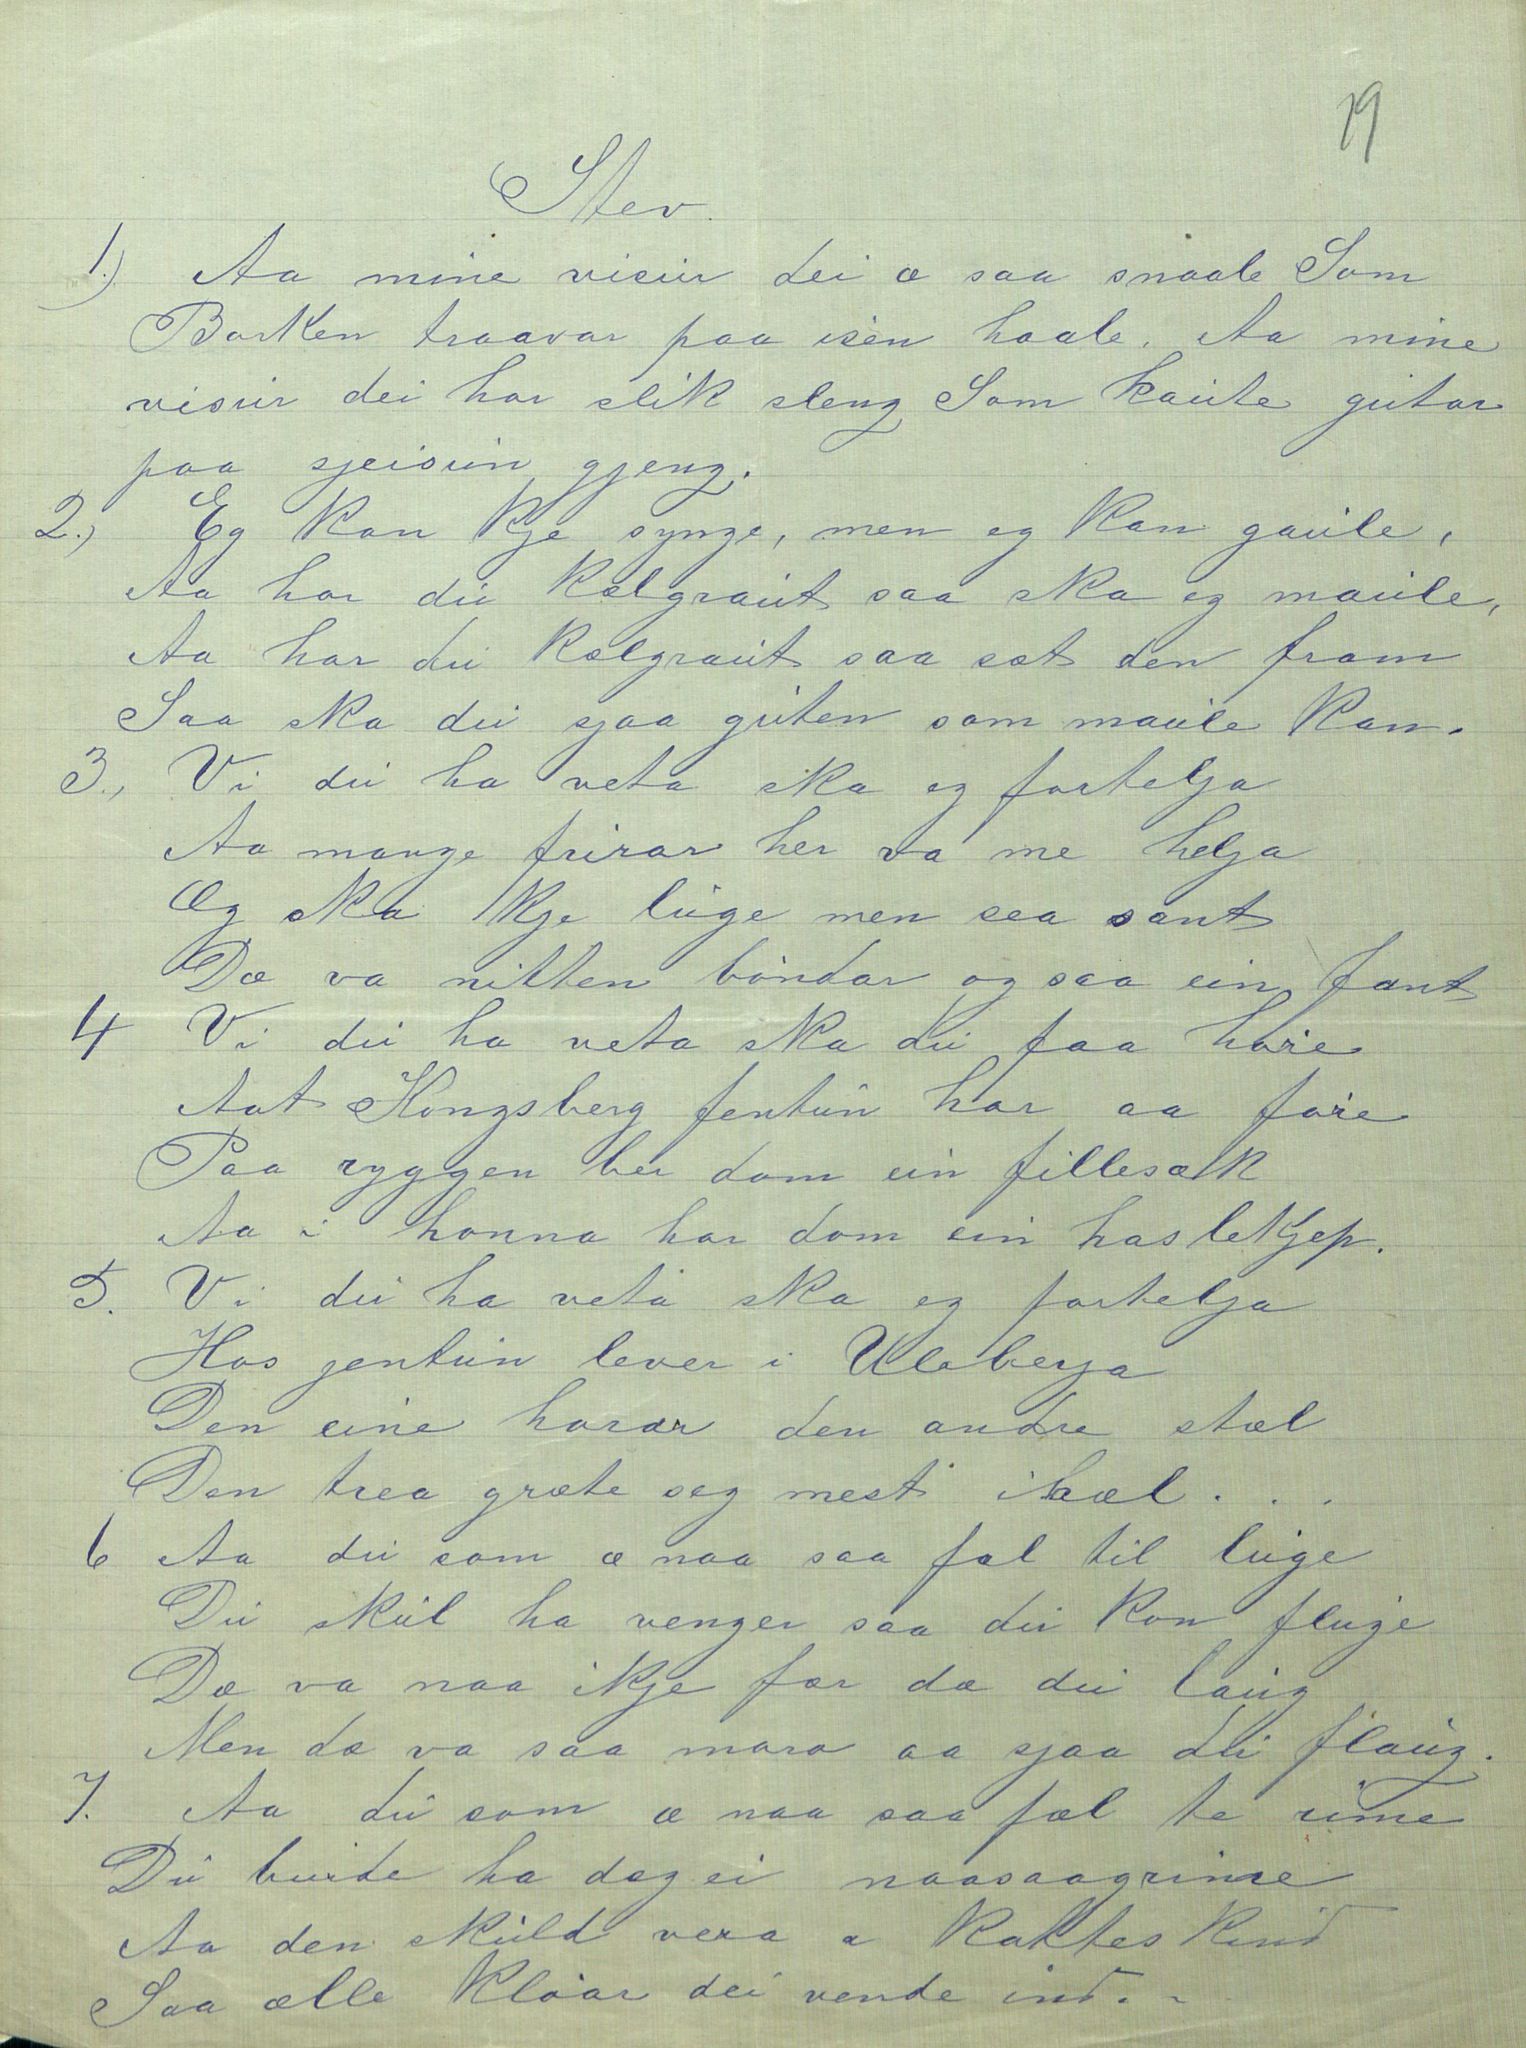 19
Stev.
1.) Aa mine visur dei æ saa snaale Som
Borken traavar paa isen haale. Aa mine
visur dei har slik sleng Som kaute gutar
paa sjeisun gjeng.
2.) Eg kan kje synge, men eg kan gaule,
Aa har du kælgraut saa ska eg maule,
Aa har du kælgraut saa set den fram
Saa ska du sjaa guten som maule kan.
3., Vi du ha veta ska eg fortelja
Aa mange frirar her va me helja
Eg ska kje luge men sea sant
Dæ va nitten bøndar og saa ein fant
4 Vi du ha veta ska du faa høire
Aat Kongsberg fentun har aa føre
Paa ryggen ber dom ein fillesæk
Aa i honna har dom ein haslekjep.
5. Vi du ha veta ska eg fortelja
Hos jentun lever i Uleberja
Den eine horar den andre stæl
Den trea græte seg mest ihæl . . .
6 Aa du som æ naa saa fæl til luge
Du skul ha venger saa du kon fluge
Dæ va naa ikje før dæ du laug
Men dæ va saa moro aa sjaa du flaug.
7. Aa du som æ naa saa fæl te rime
Du burde ha deg ei naasaagrime
Aa den skuld vera a kattes kind
Saa ælle kloar dei vende ind. -